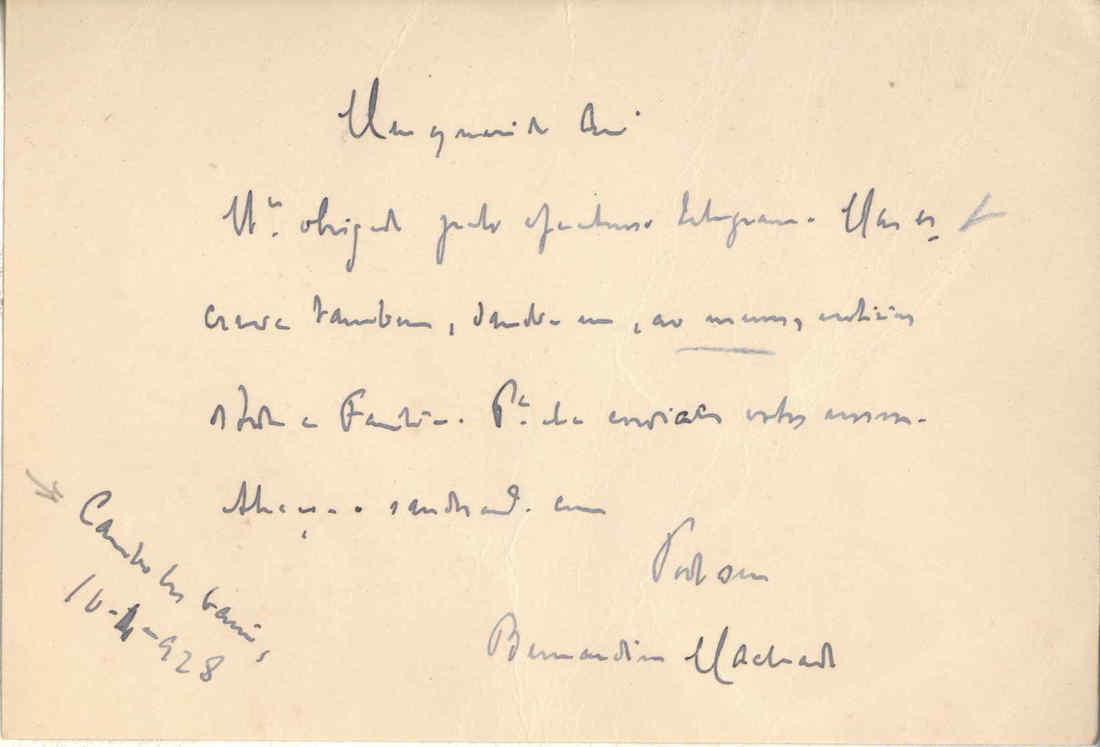 Meu querido Am.
M.to obrigado pelo affectuoso telegrama. Mas es-
creva tambem, dando-me, ao menos, noticias
de toda a Familia. P.a ella enviamos todos
Abraça-o
Todo seu
Bernardino Machado
Cambo les bains,
16-4-928